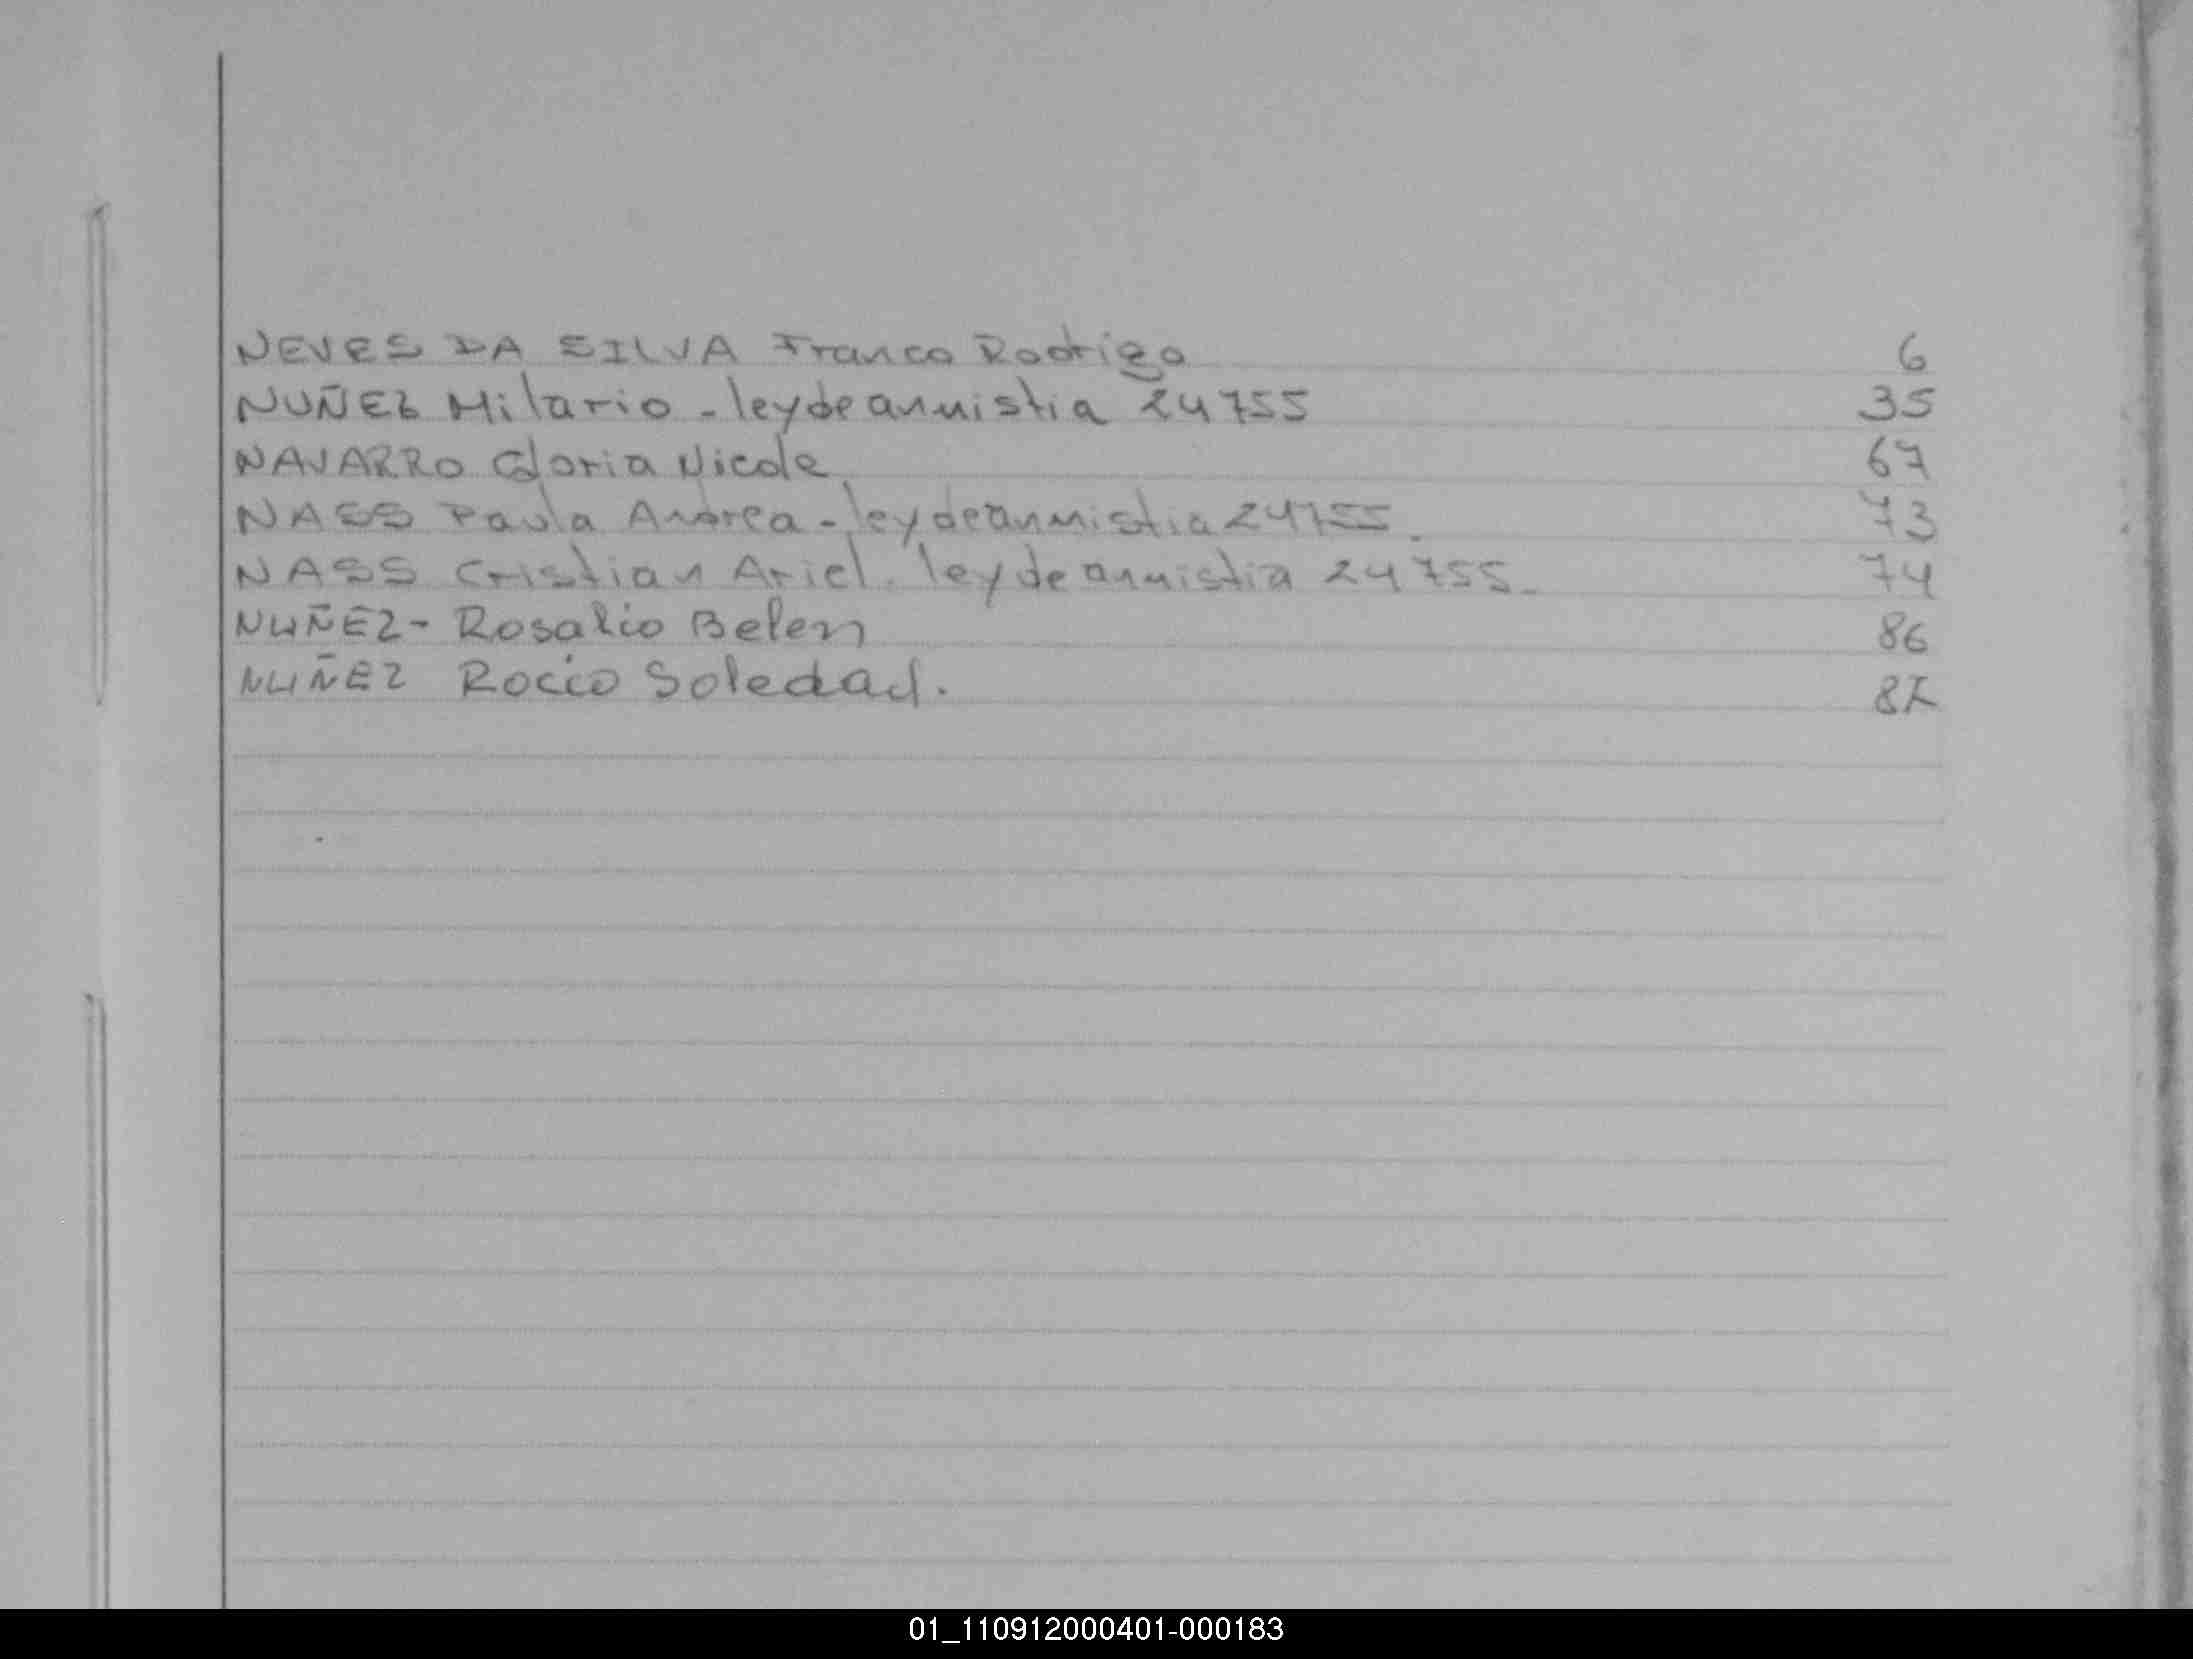 NEVES DA SILVA Franco Rodrigo 6
NUÑEZ Hilario - ley de amnistia 24755 35
NAVARRO Gloria Nicole 67
NASS Paula Andrea - ley de anmistia 24755. 73
NASS Cristian Ariel. ley de anmistia 24755. 74
NUÑEZ - Rosalio Belen 86
NUÑEZ Rocio Soledad. 87
01_110912000401-000183